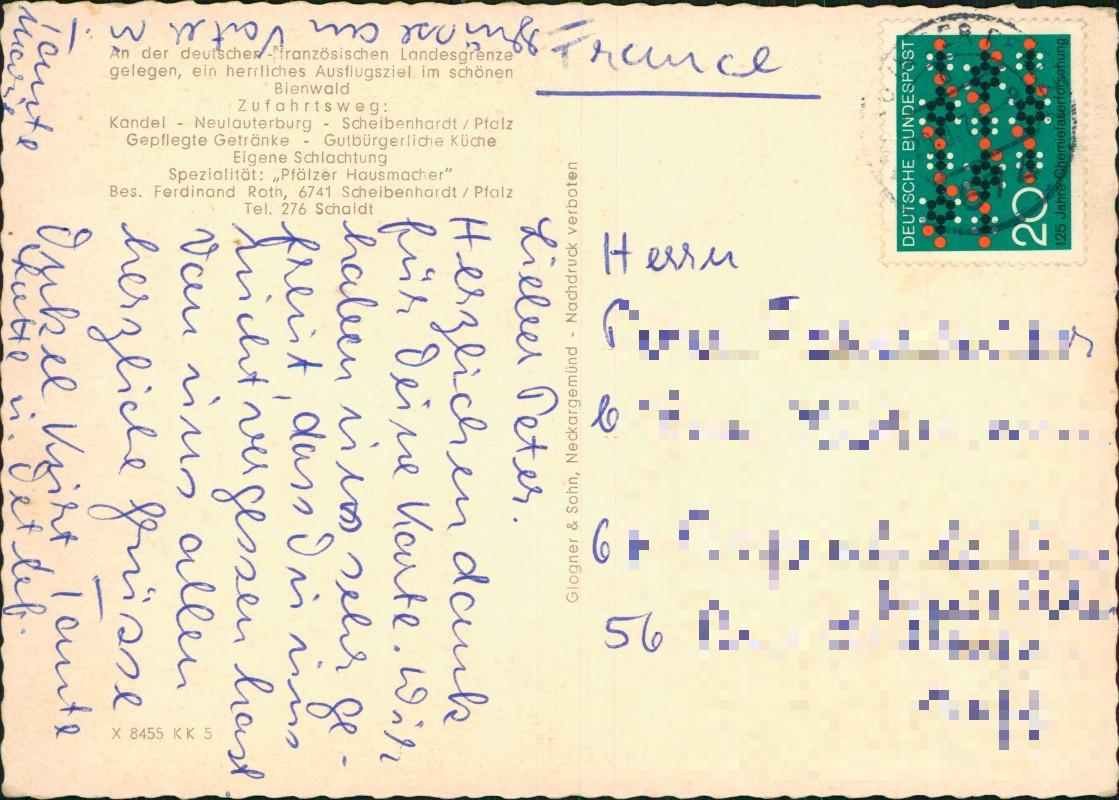 An der deutschen-französischen Landesgrenze
gelegen, ein herrliches Ausflugsziel im schönen
Bienwald
Zufahrtsweg:
Kandel - Neulauterburg - Scheibenhardt / Pfalz
Gepflegte Getränke - Gutbürgerliche Küche
Eigene Schlachtung
Spezialität: „Pfälzer Hausmacher"
Bes. Ferdinand Roth, 6741 Scheibenhardt / Pfalz
Tel. 276 Schaidt
Lieber Peter.
Herzlichen dank
für Deine Karte. Wir
haben uns sehr ge-
freut, dass Du uns
nicht vergessen hast
Von uns allen
herzliche Grüsse
Onkel Kurt Tante
u. Detlef.
Grüsse an Vater u.
Tante
X 8455 KK 5
Glogner & Sohn, Neckargemünd - Nachdruck verboten
France
DEUTSCHE BUNDESPOST
20
125 Jahre Chemiefaserforschung
Herrn
6
56